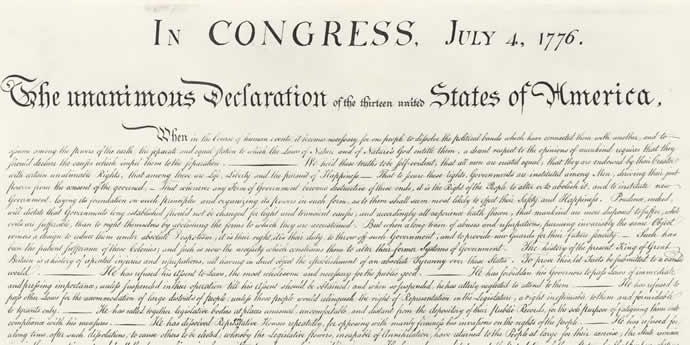 IN CONGRESS, JULY 4, 1776.
The unanimous Declaration of the thirteen united States of America,
When in the Course of human events it becomes necessary for one people to dissolve the political bands which have connected them with another, and to
assume among the powers of the earth, the separate and equal station to which the Laws of Nature and of Nature's God entitle them, a decent respect to the opinions of mankind requires that they
should declare the causes which impel them to the separation. — We hold these truths to be self-evident, that all men are created equal, that they are endowed by their Creator
with certain unalienable Rights, that among these are Life, Liberty and the pursuit of Happiness.— That to secure these rights, Governments are instituted among Men, deriving their just
powers from the consent of the governed,— That whenever any Form of Government becomes destructive of these ends, it is the Right of the People to alter or to abolish it, and to institute new
Government, laying its foundation on such principles and organizing its powers in such form, as to them shall seem most likely to effect their Safety and Happiness. Prudence, indeed,
will dictate that Governments long established should not be changed for light and transient causes; and accordingly all experience hath shewn, that mankind are more disposed to suffer, while
evils are sufferable, than to right themselves by abolishing the forms to which they are accustomed. But when a long train of abuses and usurpations, pursuing invariably the same Object
evinces a design to reduce them under absolute Despotism, it is their right, it is their duty, to throw off such Government, and to provide new Guards for their future security.— Such has
been the patient sufferance of these Colonies; and such is now the necessity which constrains them to alter their former Systems of Government. The history of the present King of Great
Britain is a history of repeated injuries and usurpations, all having in direct object the establishment of an absolute Tyranny over these States. To prove this, let Facts be submitted to a candid
world. — He has refused his Assent to Laws, the most wholesome and necessary for the public good. — He has forbidden his Governors to pass Laws of immediate
and pressing importance, unless suspended in their operation till his Assent should be obtained; and when so suspended, he has utterly neglected to attend to them. — He has refused to
pass other Laws for the accommodation of large districts of people, unless those people would relinquish the right of Representation in the Legislature, a right inestimable to them and formidable
to tyrants only. — He has called together legislative bodies at places unusual, uncomfortable, and distant from the depository of their public Records, for the sole purpose of fatiguing them into
compliance with his measures. — He has dissolved Representative Houses repeatedly, for opposing with manly firmness his invasions on the rights of the people. — He has refused for a
long time, after such dissolutions, to cause others to be elected; whereby the Legislative powers, incapable of Annihilation, have returned to the People at large for their exercise; the State remain